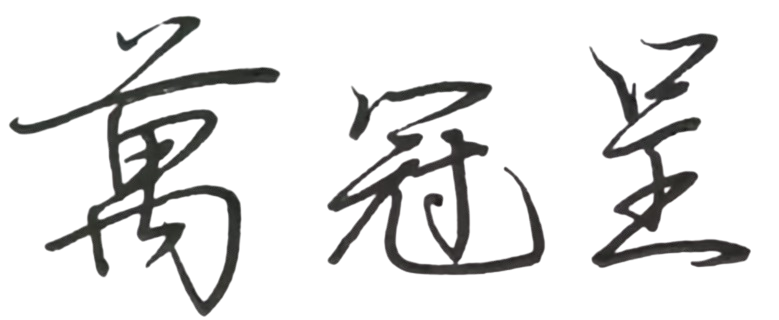 萬冠呈